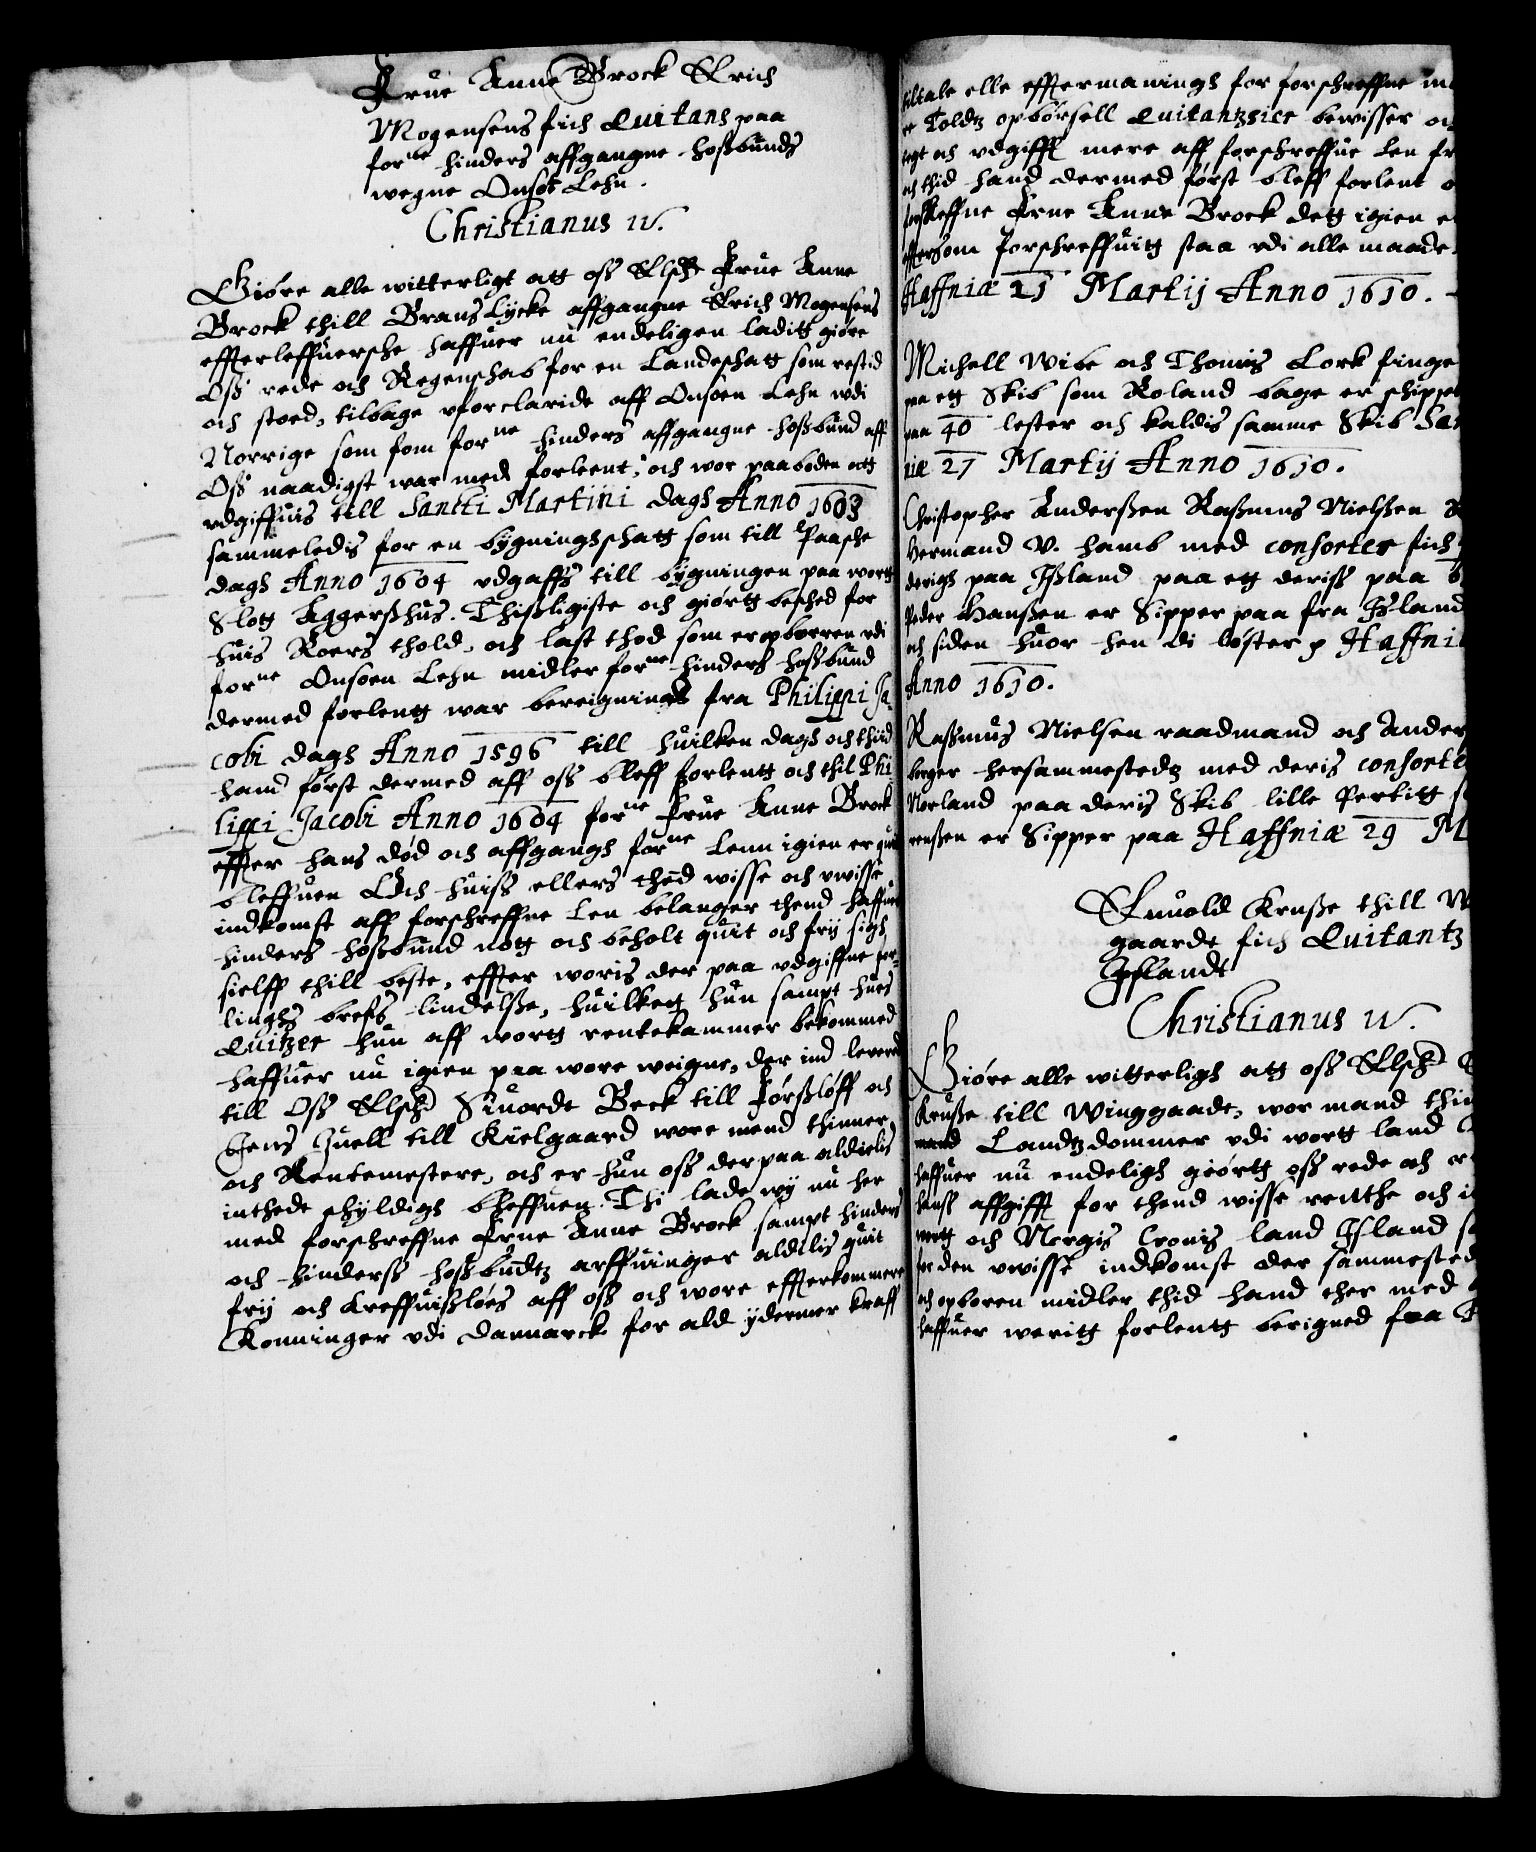 Frue Anne Brock Erich
Mogensens fich Quitans paa
forne hinders affgangne hossbunds
wegne Onsøe Lehn.
Christianus IV.
Giøre alle witterligt att oss Elschl Frue Anne
Brock thill Brans Lycke affgangne Erich Mogensens
effterleffuersche haffuer nu endeligen laditt giøre
Oss rede och Regenschab for en Landeschatt som restid
och stoed, tilbage vforclaride aff Onsøen Lehn wdi
Norrige som fom forne hinders affgangne hossbund aff
Oss naadigst war med forleent, och wor paaboden att
vdgiffuis till Sancti Martini dagh Anno 1603
sammeledis for en bygningsschatt som till Paasche
dagh Anno 1604 vdgaffs till bygningen paa wortt
Slott Aggershus. Thissligiste och giørtt besched for
huis Roers thold, och last thod som er opborren vdi
forne Onsøen Lehn midler forne hinders hossbund
dermed forlentt war bereignings fra Philippi Ja-
cobi dagh Anno 1596 till huilken dagh och thiid
hand først dermed aff oss bleff forlentt och thil Phi-
lippi Jacobi Anno 1604 forne Frue Anne Brock
effter hans død och affgangh forne Lenn igien er quit
bleffuen Och huiss ellers thend wisse och vwisse
indkomst aff forschreffne Len belanger thend haffuer
hinders hossbund nott och beholt quit och frij sigh
sielff thill beste, effter woris der paa vdgiffne for-
linghs brefs lindelsse, huilkett hun sampt hues
Quitzer hun aff wortt rentekammer bekommed
haffuer nu igien paa wore weigne, der ind levered
till Oss Elschl Siuorde Beck till Førssløff och
Jens Juell till Kielgaard wore mend thinner
och Rentemestere, och er hun oss der paa aldielis
inthede schyldigh bleffuen. Thi lade wij nu her
med forschreffne Frue Anne Brock sampt hinders
och hinderss hossbundtz arffuinger aldelis quit
frij och kreffuissløes aff oss och wore effterkommere
Konninger vdi Dannarck for ald ydermer kraff
tiltale elle efftermanings for forschreffne
re Toldtz opbørsell Quitantzsier bewisser
och vdgifft mere aff forschreffue Len
och thid hand dermed først bleff forlent
forskreffne Frue Anne Brock dett igien
effthersom forschreffuitt staa vdi alle maade.
Haffniæ 21 Martij Anno 1610.
Michell Wibe och Thomis Lork finge
paa ett Skib som Roland bage er schipper
paa 40 lester och kaldis samme Skib
niæ 27 Martij Anno 1610.
Christopher Anderssen Rassmus Nielssen
Hermand V. hamb med consorter fich
derigh paa Issland paa ett deriss paa
Peder Hanssen er Sipper paa fra Issland
och siden huor hen di løster p Haffni
Anno 1610.
Rassmus Nielsen raadmand och Ander
berger hersammestedtz med deris consorte
Norland paa deris Skib lille Fertitt
renssen er Sipper paa Haffniæ 29 M
Enuold Krusse thill
gaarde fich Quitantz
Issland
Christianus IV.
Giøre alle witterligh att oss Elschl
Krusse till Winggaade, wor mand
Landtzdommer vdi wortt land
haffuer nu endeligh giørtt oss rede och
hanss affgifft for thend wisse renthe och
wortt och Norgis Cronis land Island
for den vwisse indkomst der sammested
och opboren midler thid hand ther med
haffuer weritt forlentt berigned fra